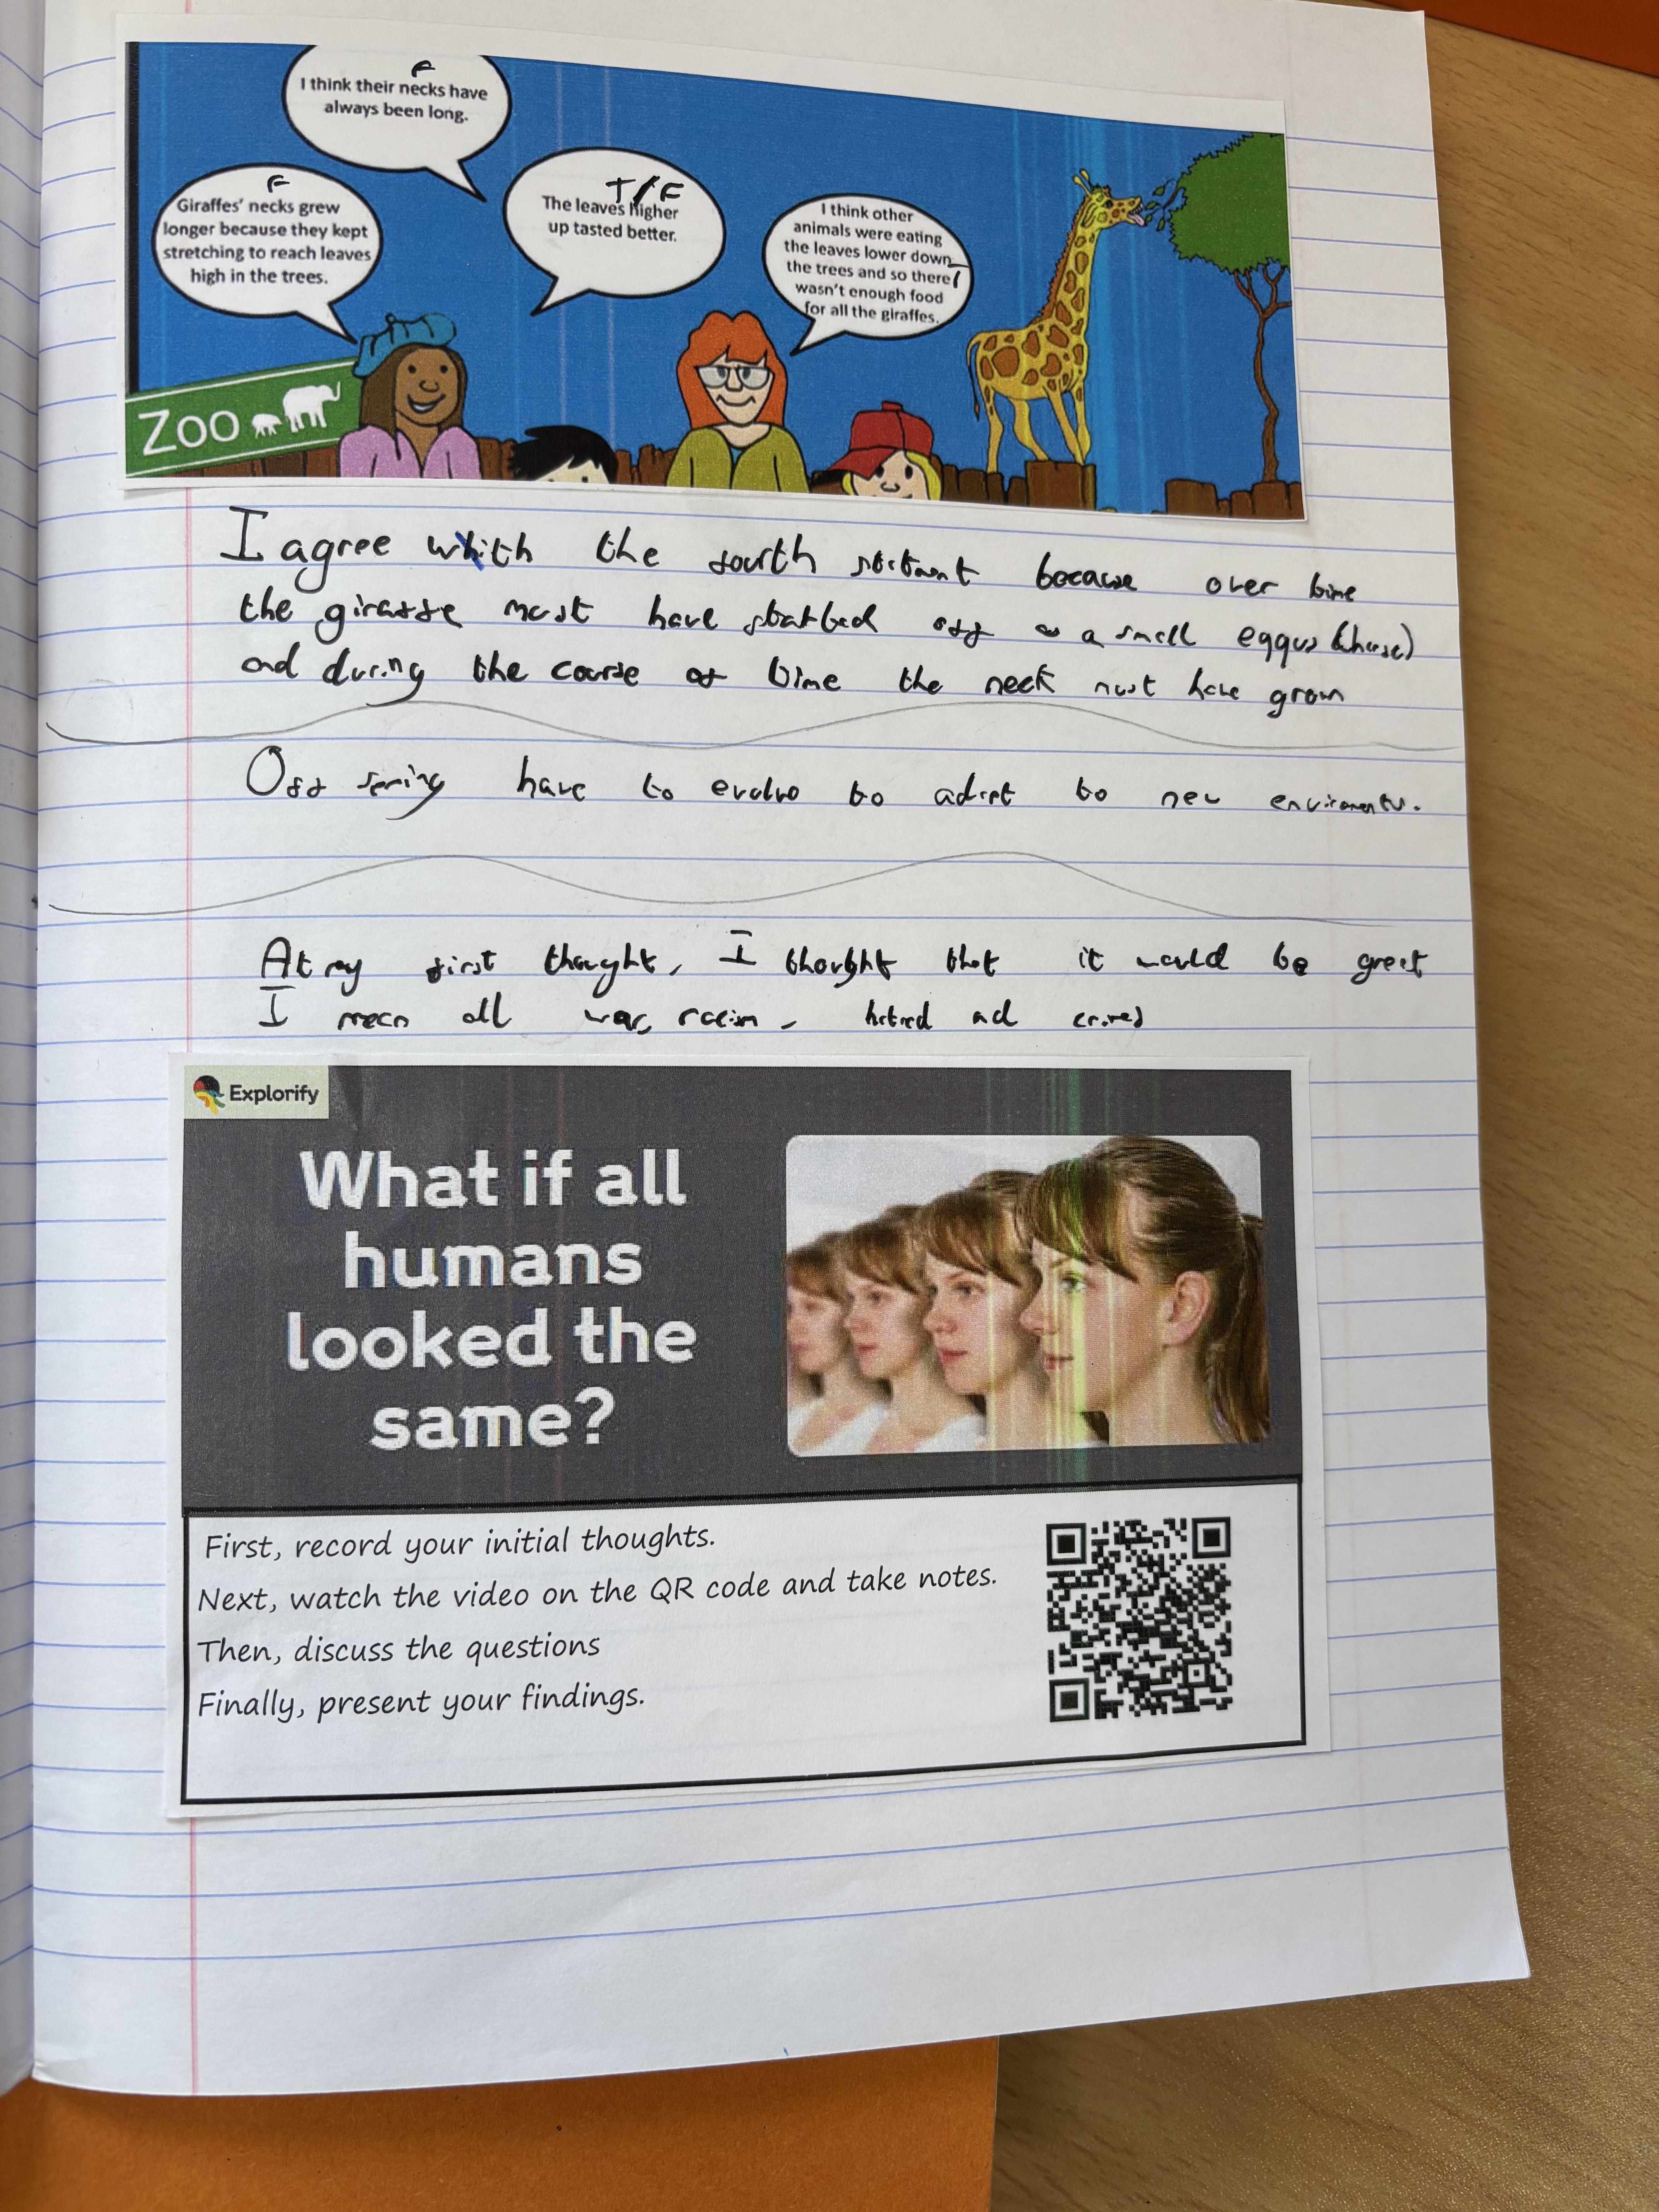 F
I think their necks have
always been long.
F
Giraffes' necks grew
longer because they kept
stretching to reach leaves
high in the trees.
T/F
The leaves higher
up tasted better.
I think other
animals were eating
the leaves lower down
the trees and so there
wasn't enough food
for all the giraffes.
Zoo
I agree with the fourth because over time
the giraffe must have started off as a small
and during the course of time the neck must have grown
Off spring have to evolve to adapt to new enviroments.
At my first thought, I thought that it would be great
I mean all war, racism, hatred and crimes
Explorify
What if all
humans
looked the
same?
First, record your initial thoughts.
Next, watch the video on the QR code and take notes.
Then, discuss the questions
Finally, present your findings.